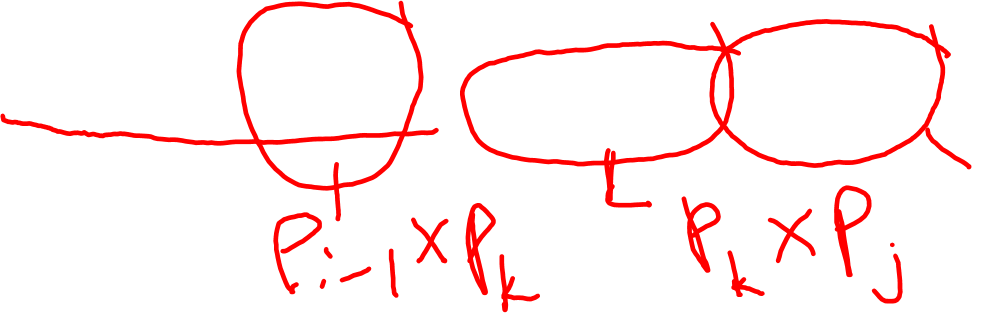 P_{i-1} × P_k    P_k × P_j